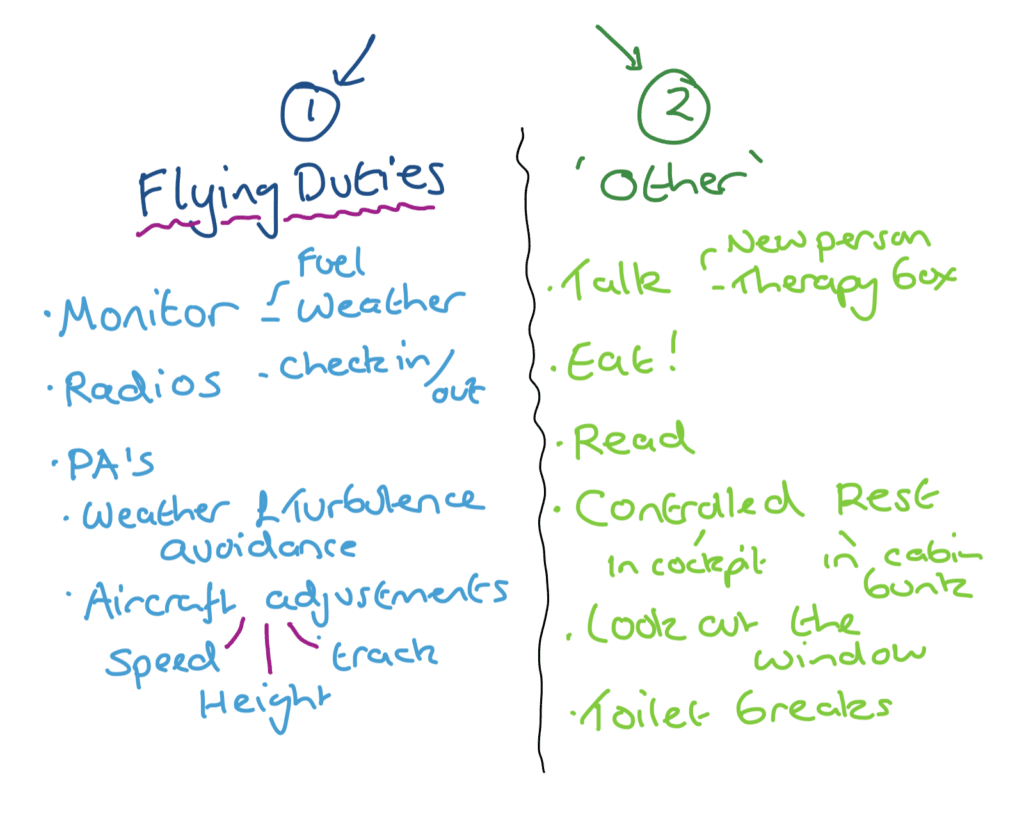 1
Flying Duties
Fuel
· Monitor - Weather
· Radios - Check in/
out
· PA's
· Weather & Turbulence
avoidance
· Aircraft adjustments
Speed
track
Height
2
'Other'
New person
· Talk - Therapy box
· Eat!
· Read
· Controlled Rest
In cockpit in cabin
bunk
· Look out the
window
· Toilet breaks